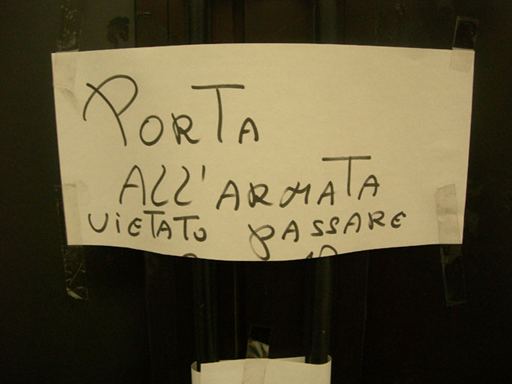 PORTA
ALL'ARMATA
VIETATO PASSARE